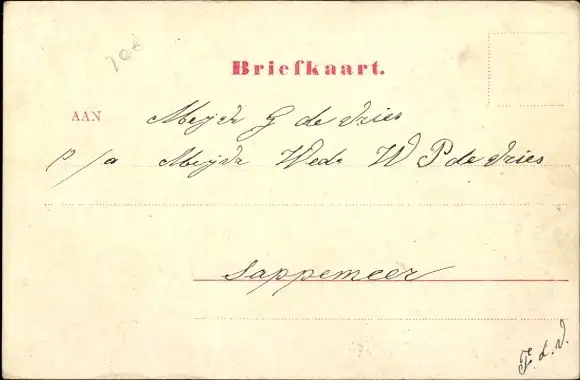 Briefkaart.
AAN Mejdr G de Vries
p/a Mejdr Wede W P de Vries
Sappemeer
F. d. V.